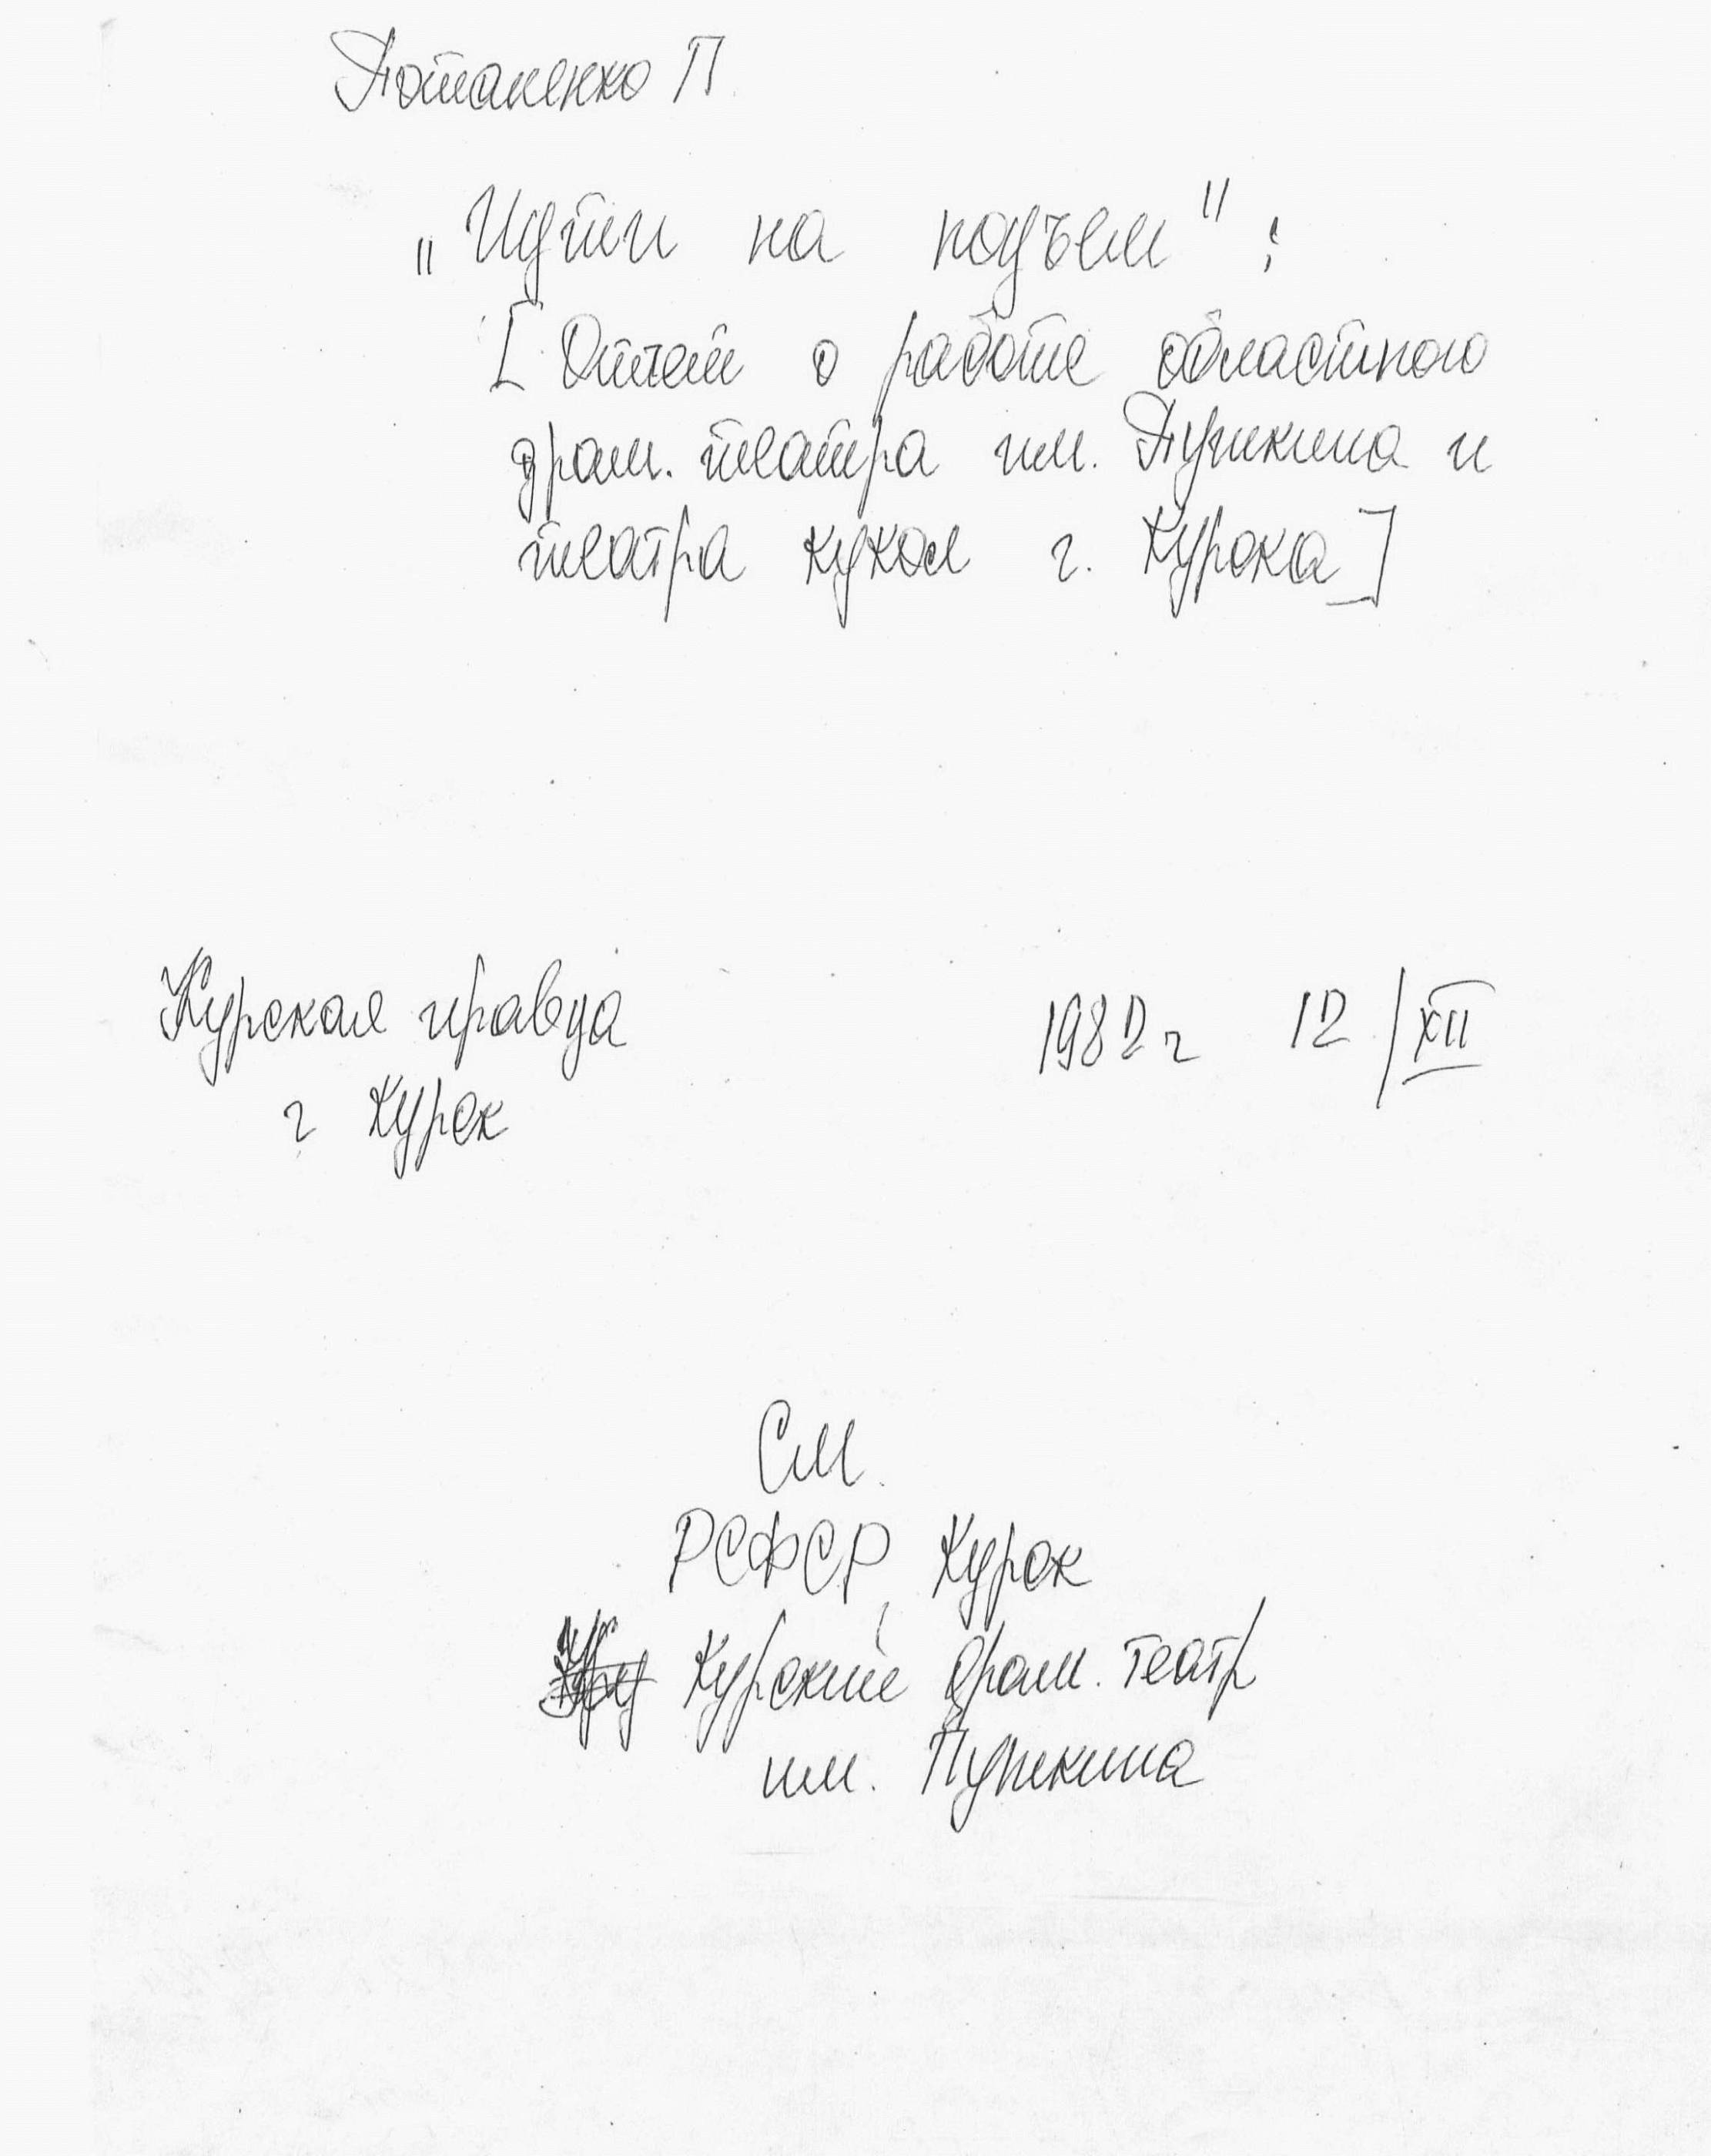 Потапенко П.
„Идти на подъем":
[Отчет о работе областного
драм. театра им. Пушкина и
театра кукол г. Курска]
Курская правда 1982 г 12/XII
г Курск
См.
РСФСР, Курск
Курский драм. театр
им. Пушкина